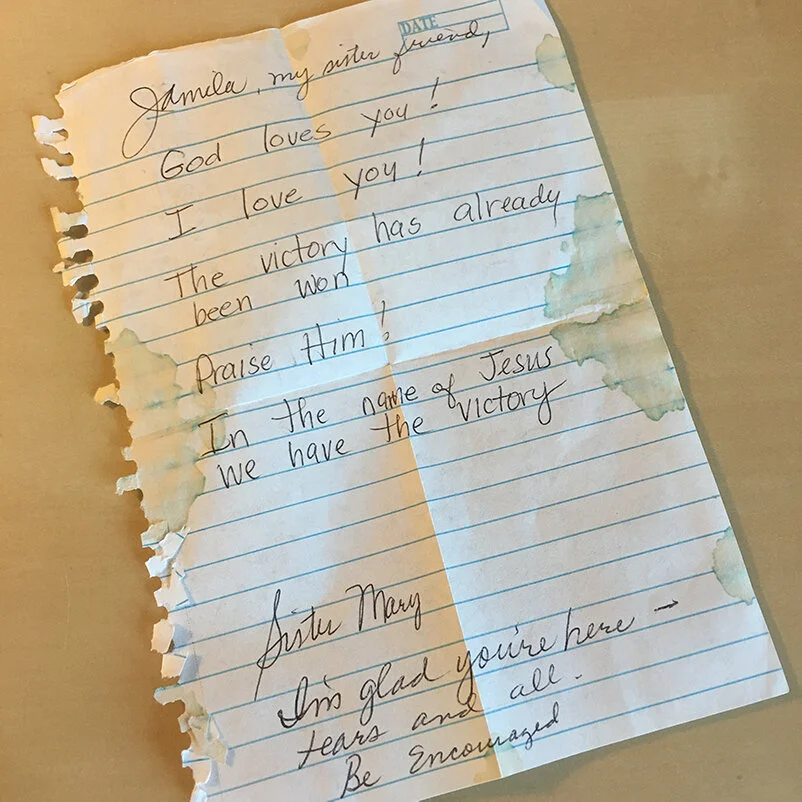 DATE
Jamila, my sister friend,
God loves you!
I love you!
The victory has already
been won
Praise Him!
In the name of Jesus
we have the victory
Sister Mary
I'm glad you're here –
tears and all.
Be Encouraged